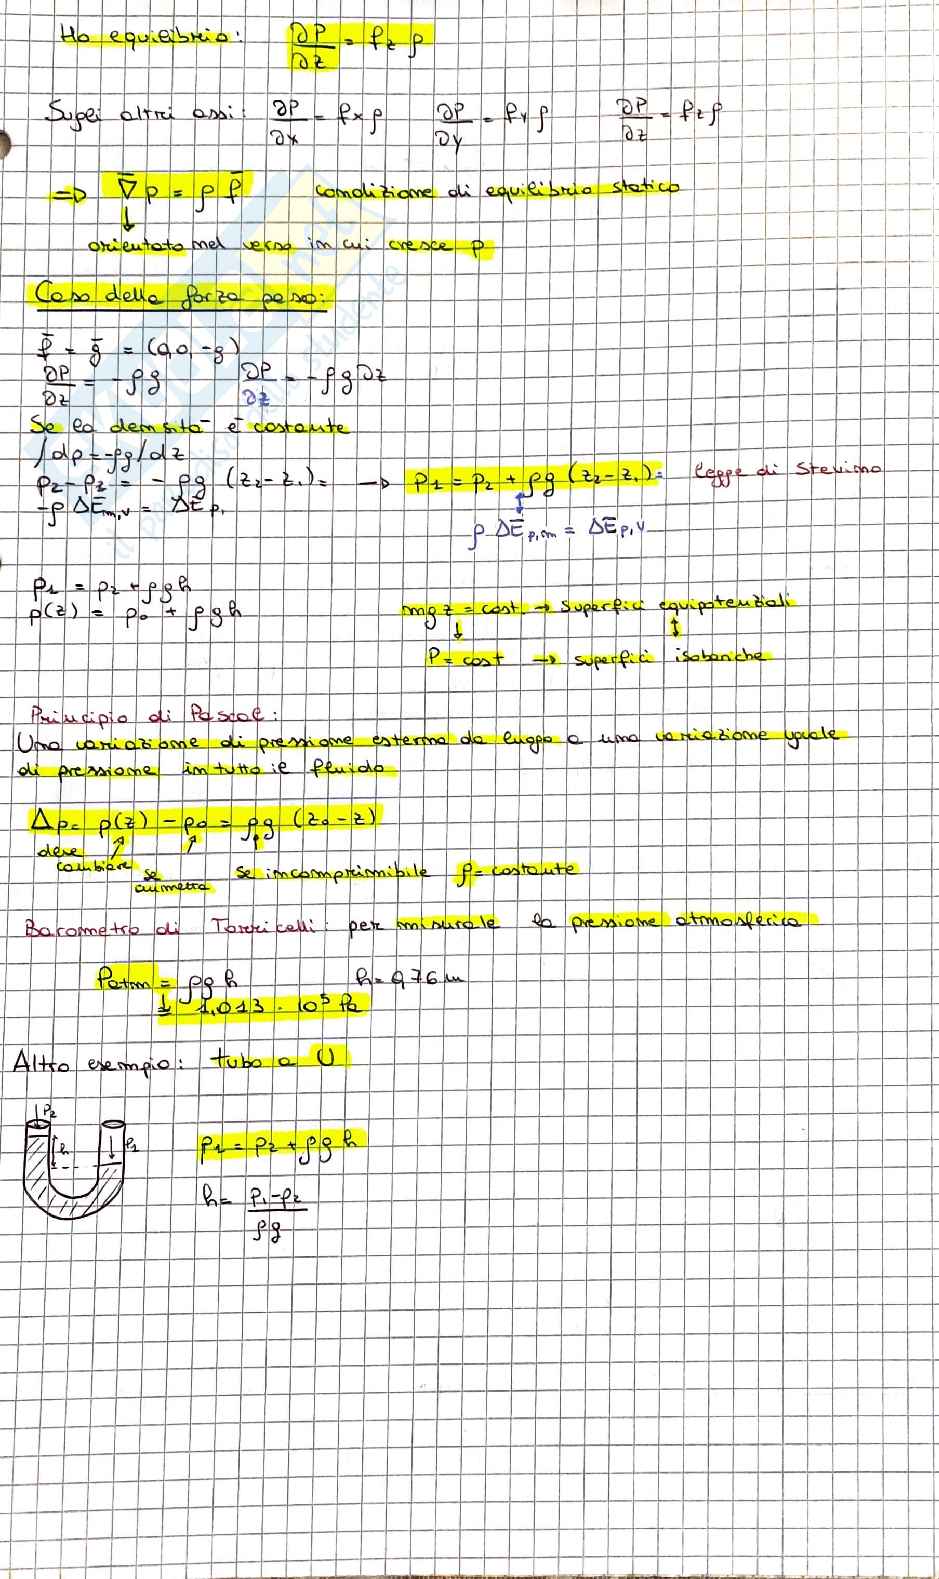 Ho equilibrio: ∂P/∂z = fz ρ
Sugli altri assi: ∂P/∂x = fx ρ ∂P/∂y = fy ρ ∂P/∂z = fz ρ
=> ∇̄ p = ρ f̄ condizione di equilibrio statico
↓
orientato nel verso in cui cresce p
Caso della forza peso:
f̄ = ḡ = (0,0,-g)
∂P/∂z = -ρg ∂P/∂z = -ρg ∂z
Se la densità è costante
∫dp = -ρg∫dz
p2-p1 = - ρg (z2-z1) = → p1 = p2 + ρg (z2-z1) = legge di Stevino
-ρ ΔEm,v = ΔEp,
ρ ΔEp,m = ΔEp,v
p1 = p2 + ρgh
p(z) = p0 + ρgh
mgz = cost → superfici equipotenziali
↓ ↕
P = cost → superfici isobariche
Principio di Pascal:
Una variazione di pressione esterna da luogo a una variazione uguale
di pressione in tutto il fluido
Δp = p(z) - p0 = ρg (z0-z)
deve cambiare
se aumenta
se incomprimibile ρ=costante
Barometro di Torricelli: per misurare la pressione atmosferica
Patm = ρgh h=0,76m
= 1,013 · 10⁵ Pa
Altro esempio: tubo a U
P2
h
P1
p1 = p2 + ρgh
h = p1-p2/ρg